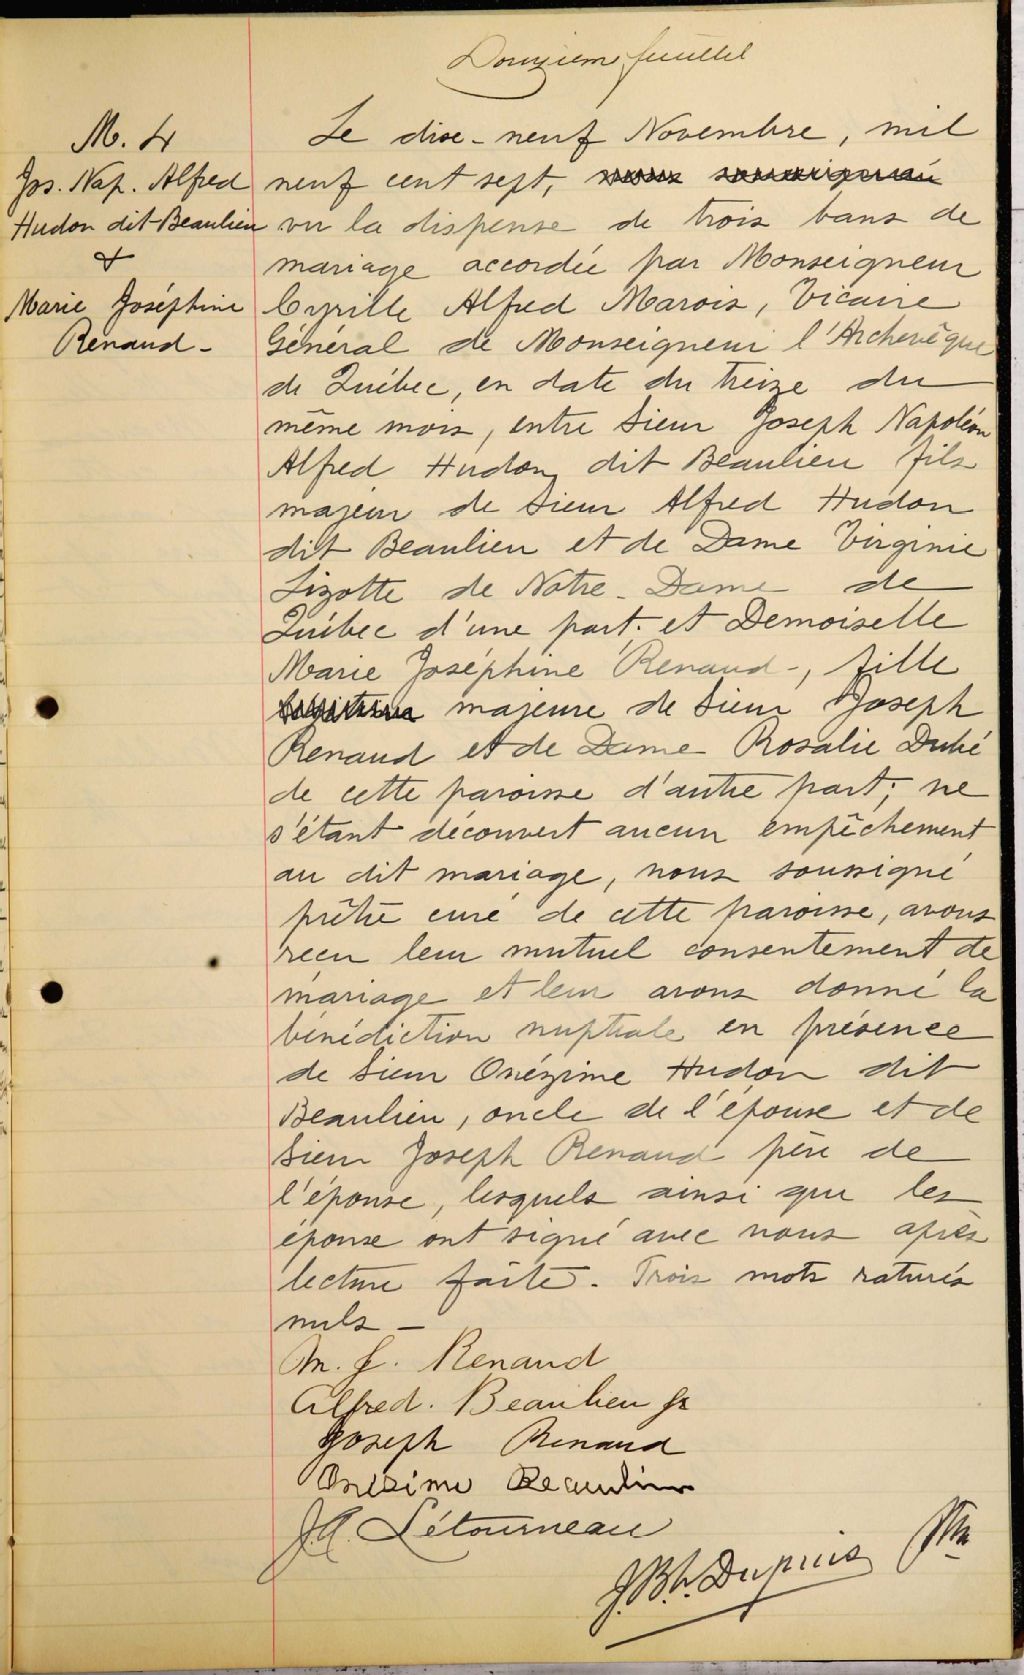 Douzième feuillet
M. 4
Jos. Nap. Alfred
Hudon dit Beaulieu
&
Marie Joséphine
Renaud -
Le dixe-neuf Novembre, mil
neuf cent sept, nous soussigné
vu la dispense de trois bans de
mariage accordée par Monseigneur
Cyrille Alfred Marois, Vicaire
Général de Monseigneur l'Archevêque
de Québec, en date du treize du
même mois, entre Sieur Joseph Napoléon
Alfred Hudon dit Beaulieu fils
majeur de Sieur Alfred Hudon
dit Beaulieu et de Dame Virginie
Lizotte de Notre-Dame de
Québec d'une part; et Demoiselle
Marie Joséphine Renaud -, fille
majeure de Sieur Joseph
Renaud et de Dame Rosalie Dubé
de cette paroisse d'autre part; ne
s'étant découvert aucun empêchement
au dit mariage, nous soussigné
prêtre curé de cette paroisse, avons
reçu leur mutuel consentement de
mariage et leur avons donné la
bénédiction nuptiale en présence
de Sieur Onézime Hudon dit
Beaulieu, oncle de l'épouse et de
Sieur Joseph Renaud père de
l'épouse, lesquels ainsi que les
épouse ont signé avec nous après
lecture faite. Trois mots raturés
nuls -
M. J. Renaud
Alfred. Beaulieu Jr
Joseph Renaud
Onésime Beaulieu
J.A. Létourneau
J. Bte. Dupuis Ptre